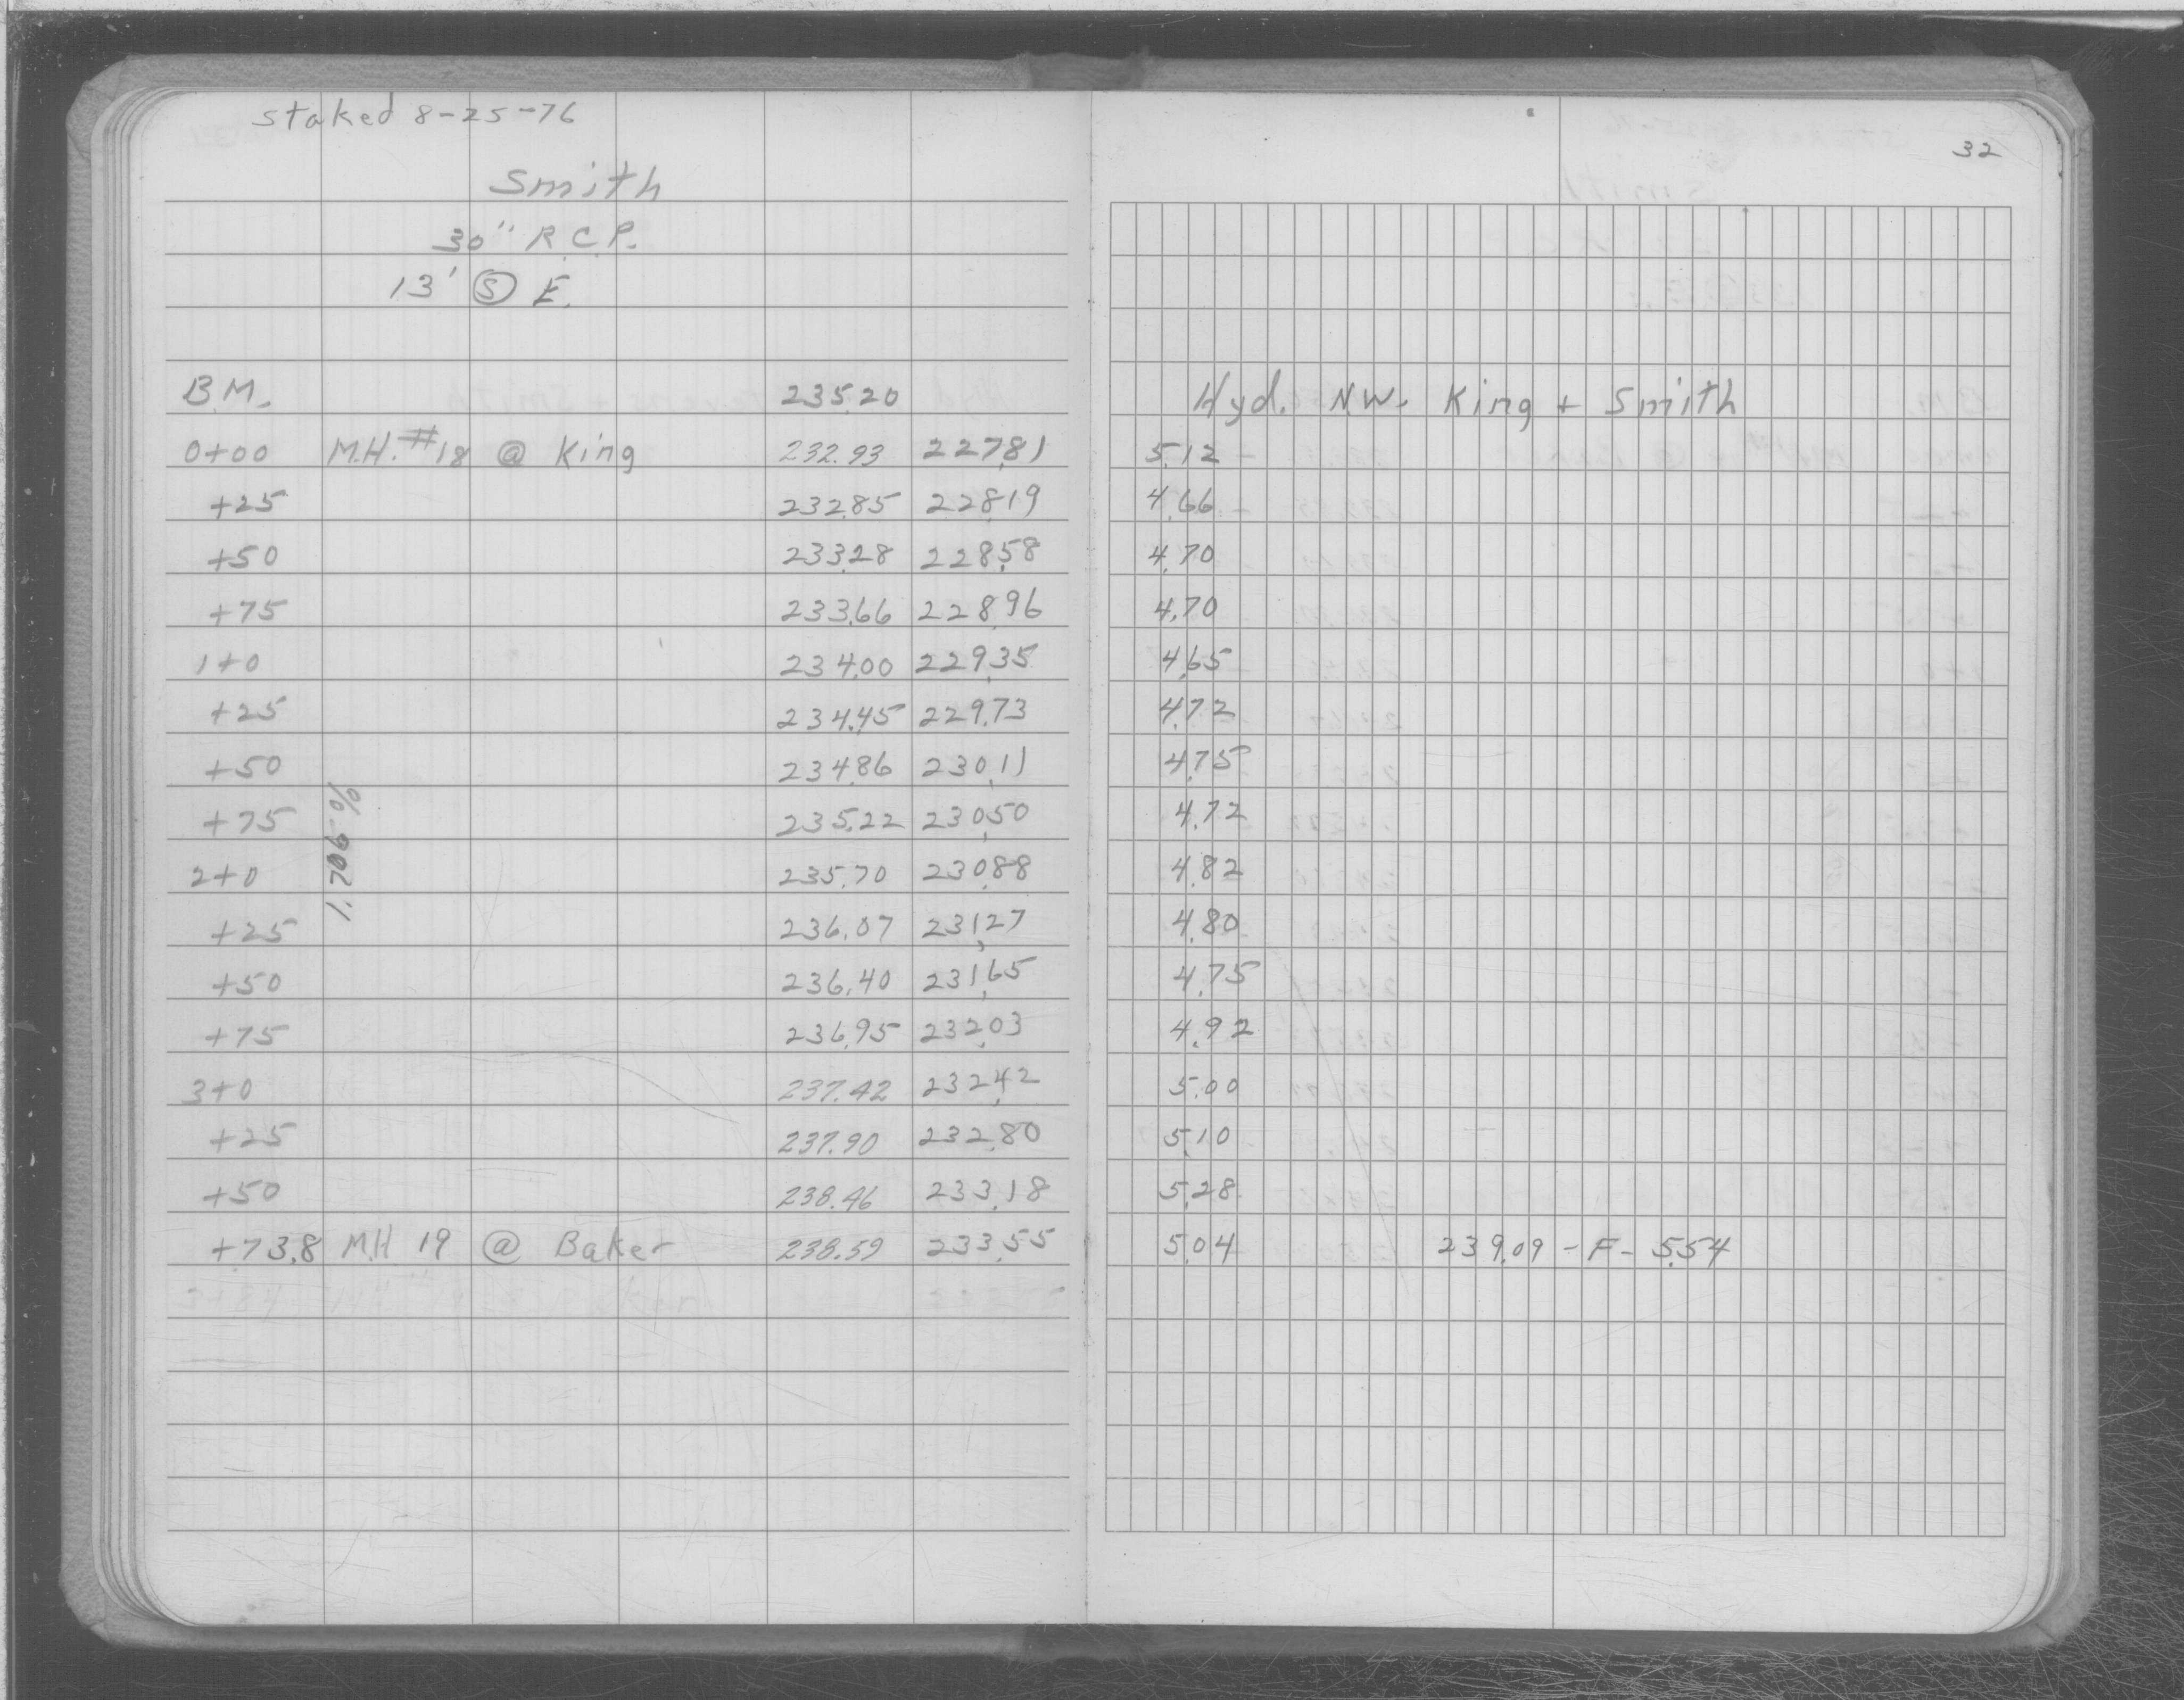 staked 8-25-76
32
Smith
30" R.C.P.
13' Ⓢ E.
B.M. 235.20 Hyd. N.W. King + Smith
0+00 M.H. #18 @ King 232.93 227.81 5.12
+25 232.85 228.19 4.66
+50 233.28 228.58 4.70
+75 233.66 228.96 4.70
1+0 234.00 229.35 4.65
+25 234.45 229.73 4.72
+50 234.86 230.11 4.75
+75 235.22 230.50 4.72
1.706 %
2+0 235.70 230.88 4.82
+25 236.07 231.27 4.80
+50 236.40 231.65 4.75
+75 236.95 232.03 4.92
3+0 237.42 232.42 5.00
+25 237.90 232.80 5.10
+50 238.46 233.18 5.28
+73.8 M.H 19 @ Baker 238.59 233.55 5.04 239.09 - F - 5.54